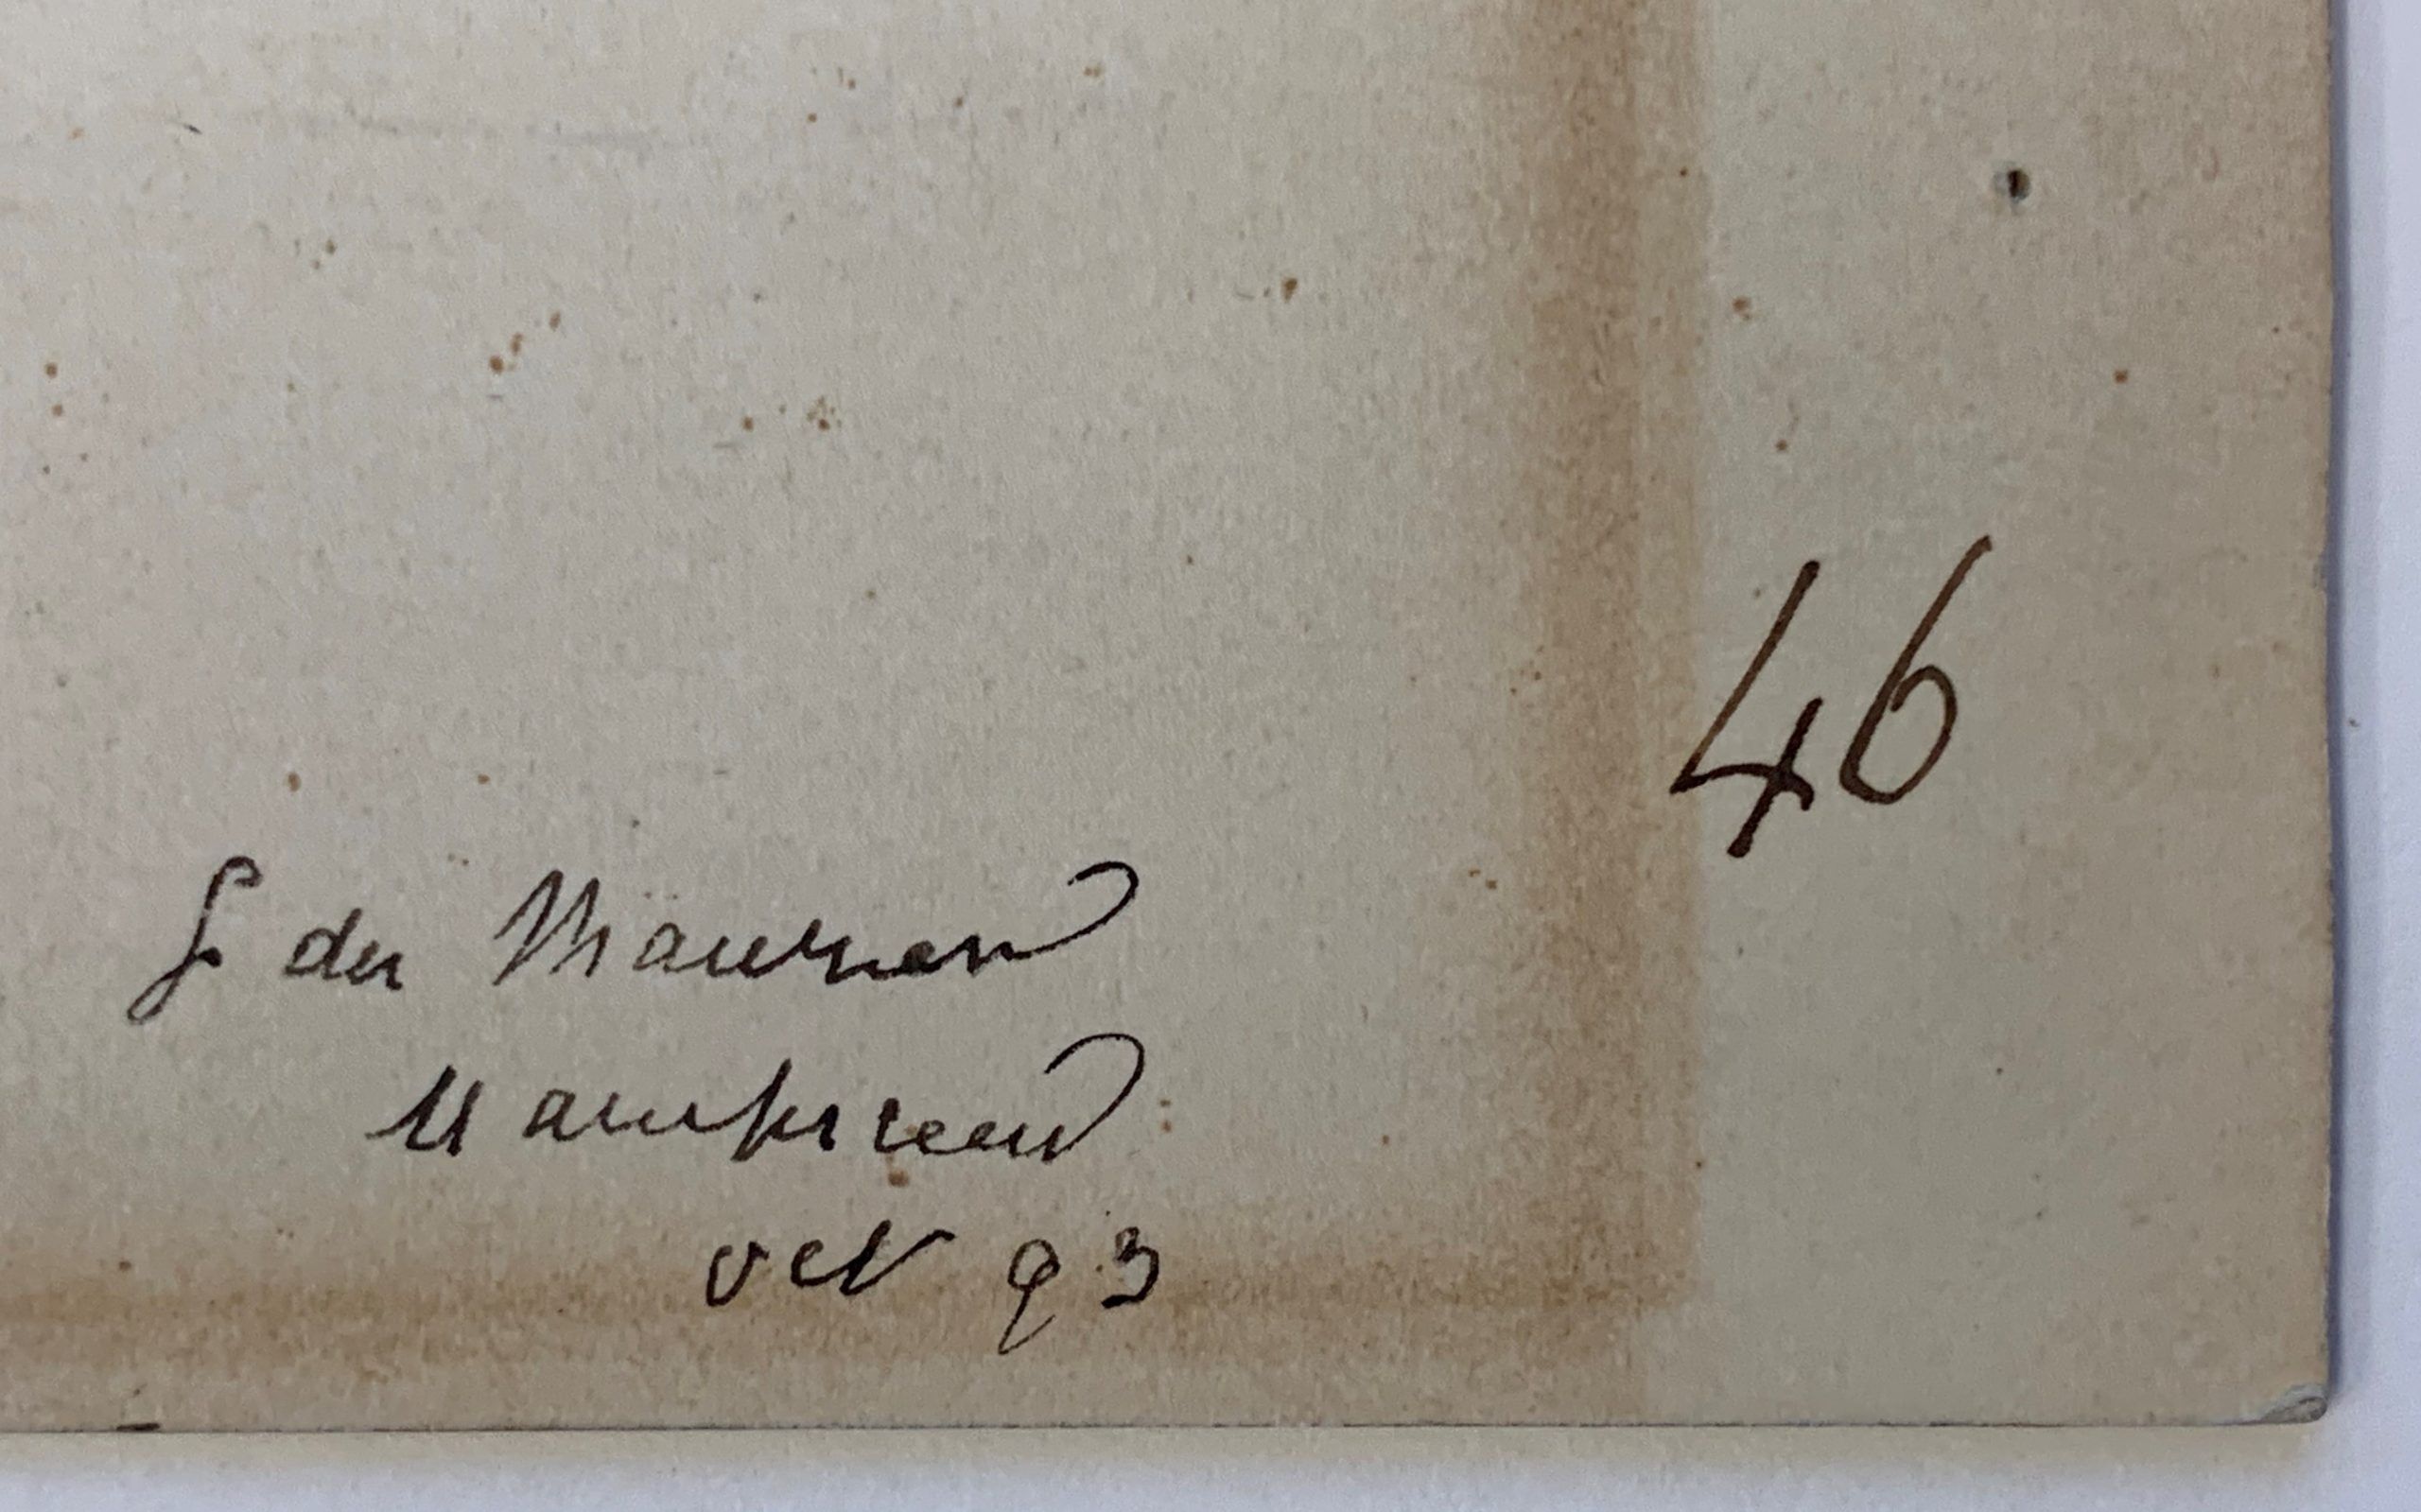 46
G du Maurier
Hampstead
Oct 93